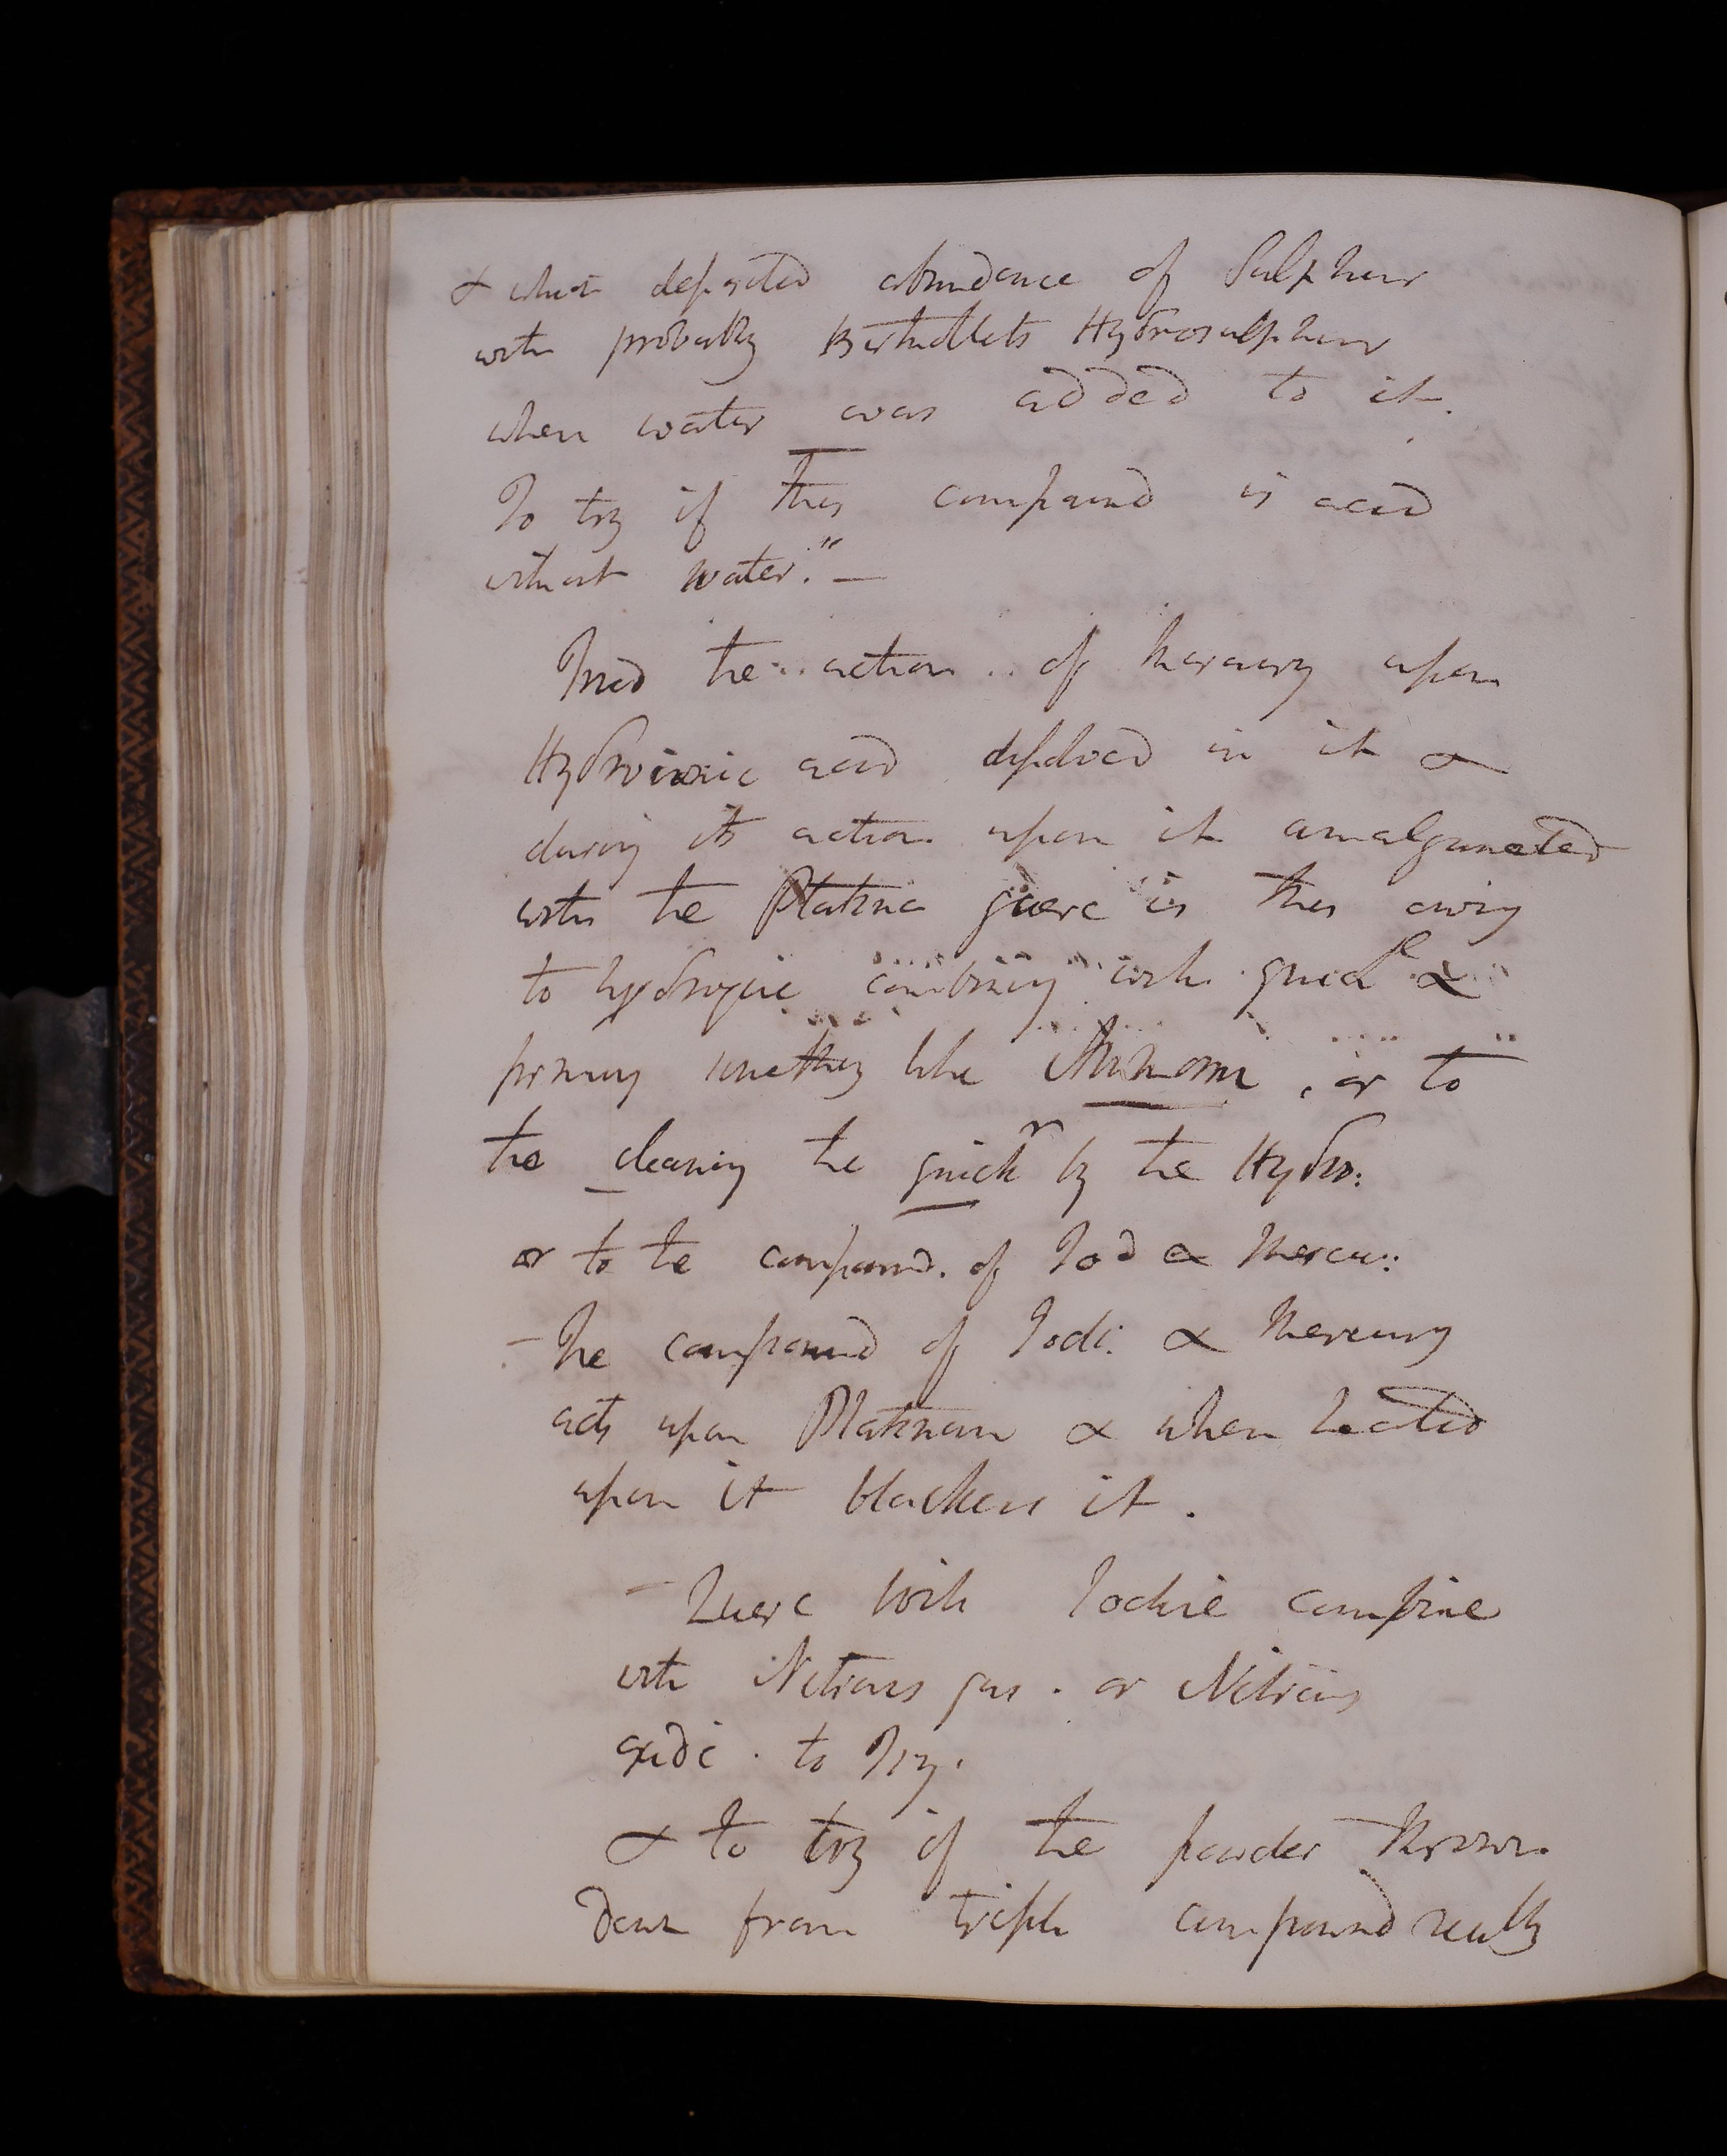 & which deposited abundance of Sulphur
with probably Berthollets Hydrosulphur
when water was added to it.
To try if this compound is acid
without water." —
Tried the action of Mercury upon
Hydroionic acid dissolved in it &
during its action upon it amalgamated
with the Platina quere is this owing
to hydrogene combining with quick &
forming something like Ammonm, or to
the cleaning the quickr by the Hydro:
or to the compound. of Iod & Mercu:
– The compound of Iodi. & Mercury
acts upon Platinum & when heated
upon it blackens it.
– Quere With Iodine combine
with Nitrous gas. or Nitrous
oxide. to Try.
& to try if the powder thrown
down from triple compound really